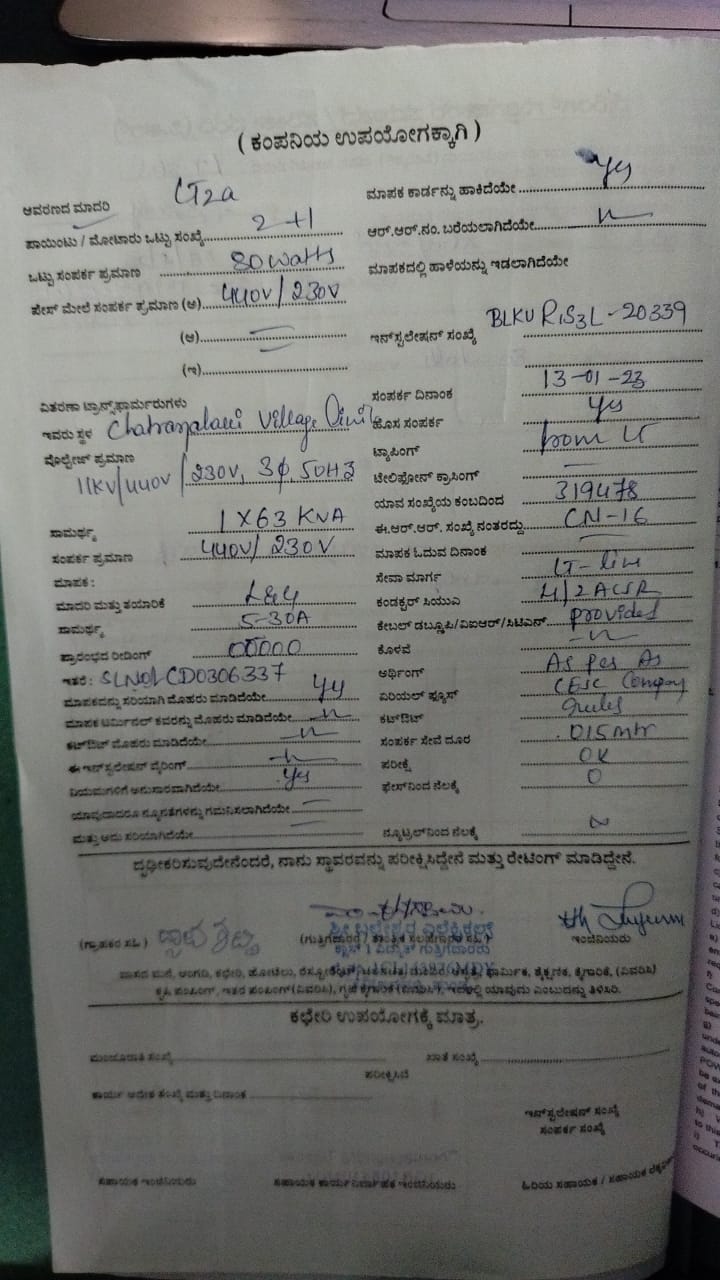 ( ಕಂಪನಿಯ ಉಪಯೋಗಕ್ಕಾಗಿ )
ಆವರಣದ ಮಾದರಿ LT2a
ಪಾಯಿಂಟು / ಮೋಟಾರು ಒಟ್ಟು ಸಂಖ್ಯೆ 2+1
ಒಟ್ಟು ಸಂಪರ್ಕ ಪ್ರಮಾಣ 80 watts
ಫೇಸ್ ಮೇಲೆ ಸಂಪರ್ಕ ಪ್ರಮಾಣ (ಅ) 440V/230V
(ಆ)
(ಇ)
ವಿತರಣಾ ಟ್ರಾನ್ಸ್‌ಫಾರ್ಮರುಗಳು
ಇವರು ಸ್ಥಳ Village
ವೋಲ್ಟೇಜ್ ಪ್ರಮಾಣ
11KV/440V/230V, 3φ, 50HZ
ಸಾಮರ್ಥ್ಯ 1X63 KVA
ಸಂಪರ್ಕ ಪ್ರಮಾಣ 440V/230V
ಮಾಪಕ :
ಮಾದರಿ ಮತ್ತು ತಯಾರಿಕೆ L&G
ಸಾಮರ್ಥ್ಯ 5-30A
ಪ್ರಾರಂಭದ ರೀಡಿಂಗ್ 00000
ಇತರೆ : SLNO/CD0306337
ಮಾಪಕದನ್ನು ಸರಿಯಾಗಿ ಮೊಹರು ಮಾಡಿದೆಯೇ Yes
ಮಾಪಕ ಟರ್ಮಿನಲ್ ಕವರನ್ನು ಮೊಹರು ಮಾಡಿದೆಯೇ
ಕಟ್‌ಔಟ್ ಮೊಹರು ಮಾಡಿದೆಯೇ
ಈ ಇನ್‌ಸ್ಟಲೇಷನ್ ವೈರಿಂಗ್
ನಿಯಮಗಳಿಗೆ ಅನುಸಾರವಾಗಿದೆಯೇ Yes
ಯಾವುದಾದರೂ ನ್ಯೂನತೆಗಳನ್ನು ಗಮನಿಸಲಾಗಿದೆಯೇ
ಮತ್ತು ಅದು ಸರಿಯಾಗಿದೆಯೇ
ಮಾಪಕ ಕಾರ್ಡನ್ನು ಹಾಕಿದೆಯೇ Yes
ಆರ್.ಆರ್.ನಂ. ಬರೆಯಲಾಗಿದೆಯೇ
ಮಾಪಕದಲ್ಲಿ ಹಾಳೆಯನ್ನು ಇಡಲಾಗಿದೆಯೇ
ಇನ್‌ಸ್ಟಲೇಷನ್ ಸಂಖ್ಯೆ BLKURIS3L-20339
ಸಂಪರ್ಕ ದಿನಾಂಕ 13-01-23
ಹೊಸ ಸಂಪರ್ಕ Yes
ಟ್ಯಾಪಿಂಗ್ from LT
ಟೆಲಿಫೋನ್ ಕ್ರಾಸಿಂಗ್
ಯಾವ ಸಂಖ್ಯೆಯ ಕಂಬದಿಂದ 319478
ಈ.ಆರ್.ಆರ್. ಸಂಖ್ಯೆ ನಂತರದ್ದು CN-16
ಮಾಪಕ ಓದುವ ದಿನಾಂಕ
ಸೇವಾ ಮಾರ್ಗ LT-line
ಕಂಡಕ್ಟರ್ ಸಿಯುಎ 4/2 ACSR
ಕೇಬಲ್ ಡಬ್ಲ್ಯೂಪಿ/ವಿಐಆರ್/ಸಿಟಿಎಸ್ provided
ಕೊಳವೆ
ಅರ್ಥಿಂಗ್ As per As
ಏರಿಯಲ್ ಫ್ಯೂಸ್ CESC Company
ಕಟ್‌ಔಟ್ rules
ಸಂಪರ್ಕ ಸೇವೆ ದೂರ .015 mtr
ಪರೀಕ್ಷೆ OK
ಫೇಸ್‌ನಿಂದ ನೆಲಕ್ಕೆ 0
ನ್ಯೂಟ್ರಲ್‌ನಿಂದ ನೆಲಕ್ಕೆ
ದೃಢೀಕರಿಸುವುದೇನೆಂದರೆ, ನಾನು ಸ್ಥಾವರವನ್ನು ಪರೀಕ್ಷಿಸಿದ್ದೇನೆ ಮತ್ತು ರೇಟಿಂಗ್ ಮಾಡಿದ್ದೇನೆ.
(ಗ್ರಾಹಕರ ಸಹಿ)
(ಗುತ್ತಿಗೆದಾರರ / ತಾಂತ್ರಿಕ ಸಲಹೆಗಾರರ ಸಹಿ)
ಇಂಜಿನಿಯರು
ವಾಸದ ಮನೆ, ಅಂಗಡಿ, ಕಛೇರಿ, ಹೋಟೆಲು, ಧಾರ್ಮಿಕ, ಶೈಕ್ಷಣಿಕ, ಕೈಗಾರಿಕೆ, (ವಿವರಿಸಿ)
ಕೃಷಿ ಪಂಪಿಂಗ್, ಇತರ ಪಂಪಿಂಗ್ (ವಿವರಿಸಿ), ಗೃಹ ಕೈಗಾರಿಕೆ (ವಿವರಿಸಿ), ಇದರಲ್ಲಿ ಯಾವುದು ಎಂಬುದನ್ನು ತಿಳಿಸಿರಿ.
ಕಛೇರಿ ಉಪಯೋಗಕ್ಕೆ ಮಾತ್ರ.
ಮಂಜೂರಾತಿ ಸಂಖ್ಯೆ
ಖಾತೆ ಸಂಖ್ಯೆ
ಪರೀಕ್ಷಿಸಿದೆ
ಕಾರ್ಯ ಆದೇಶ ಸಂಖ್ಯೆ ಮತ್ತು ದಿನಾಂಕ
ಇನ್‌ಸ್ಟಲೇಷನ್ ಸಂಖ್ಯೆ
ಸಂಪರ್ಕ ಸಂಖ್ಯೆ
ಸಹಾಯಕ ಇಂಜಿನಿಯರು
ಸಹಾಯಕ ಕಾರ್ಯನಿರ್ವಾಹಕ ಇಂಜಿನಿಯರು
ಹಿರಿಯ ಸಹಾಯಕ / ಸಹಾಯಕ